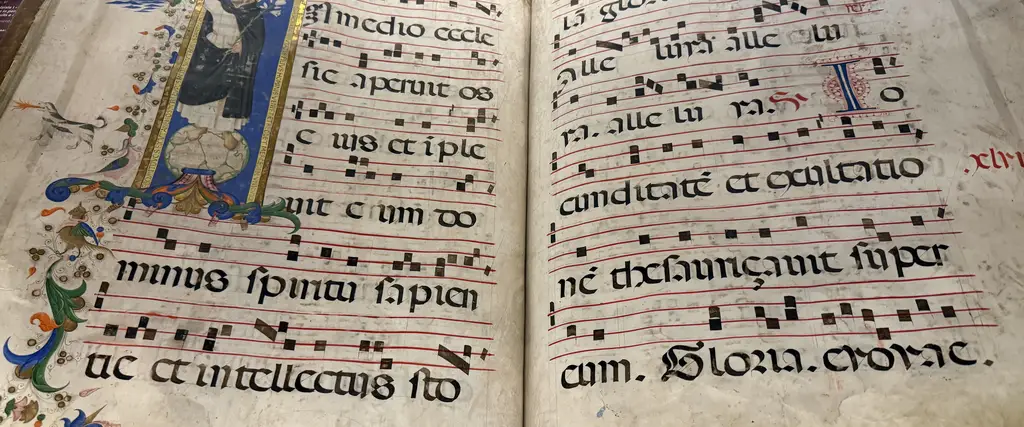 medio eccle
sie aperuit os
e ius et i ple
uit e um do
minus spiritu sapien
tie et intellectus sto
la glori
alle luia alle lu
ia. alle lu ia. Io
cunditatē et exultatio
nē thesauriçauit super
eum. Gloria. euouae.
xlvi